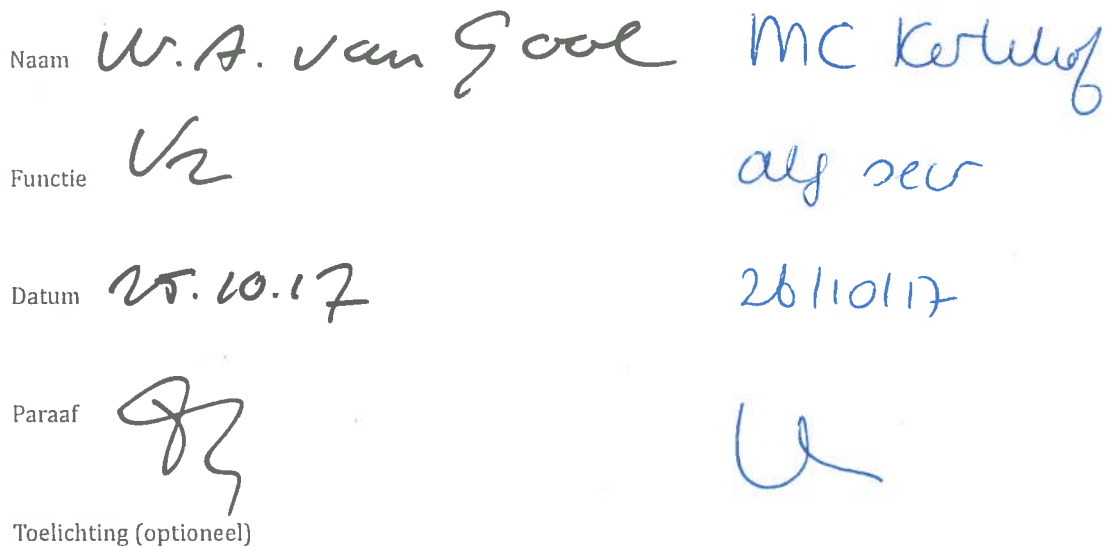 Naam W.A. van Gool MC Kerkhof
Functie Vz alg secr
Datum 25.10.17 26/10/17
Paraaf
Toelichting (optioneel)